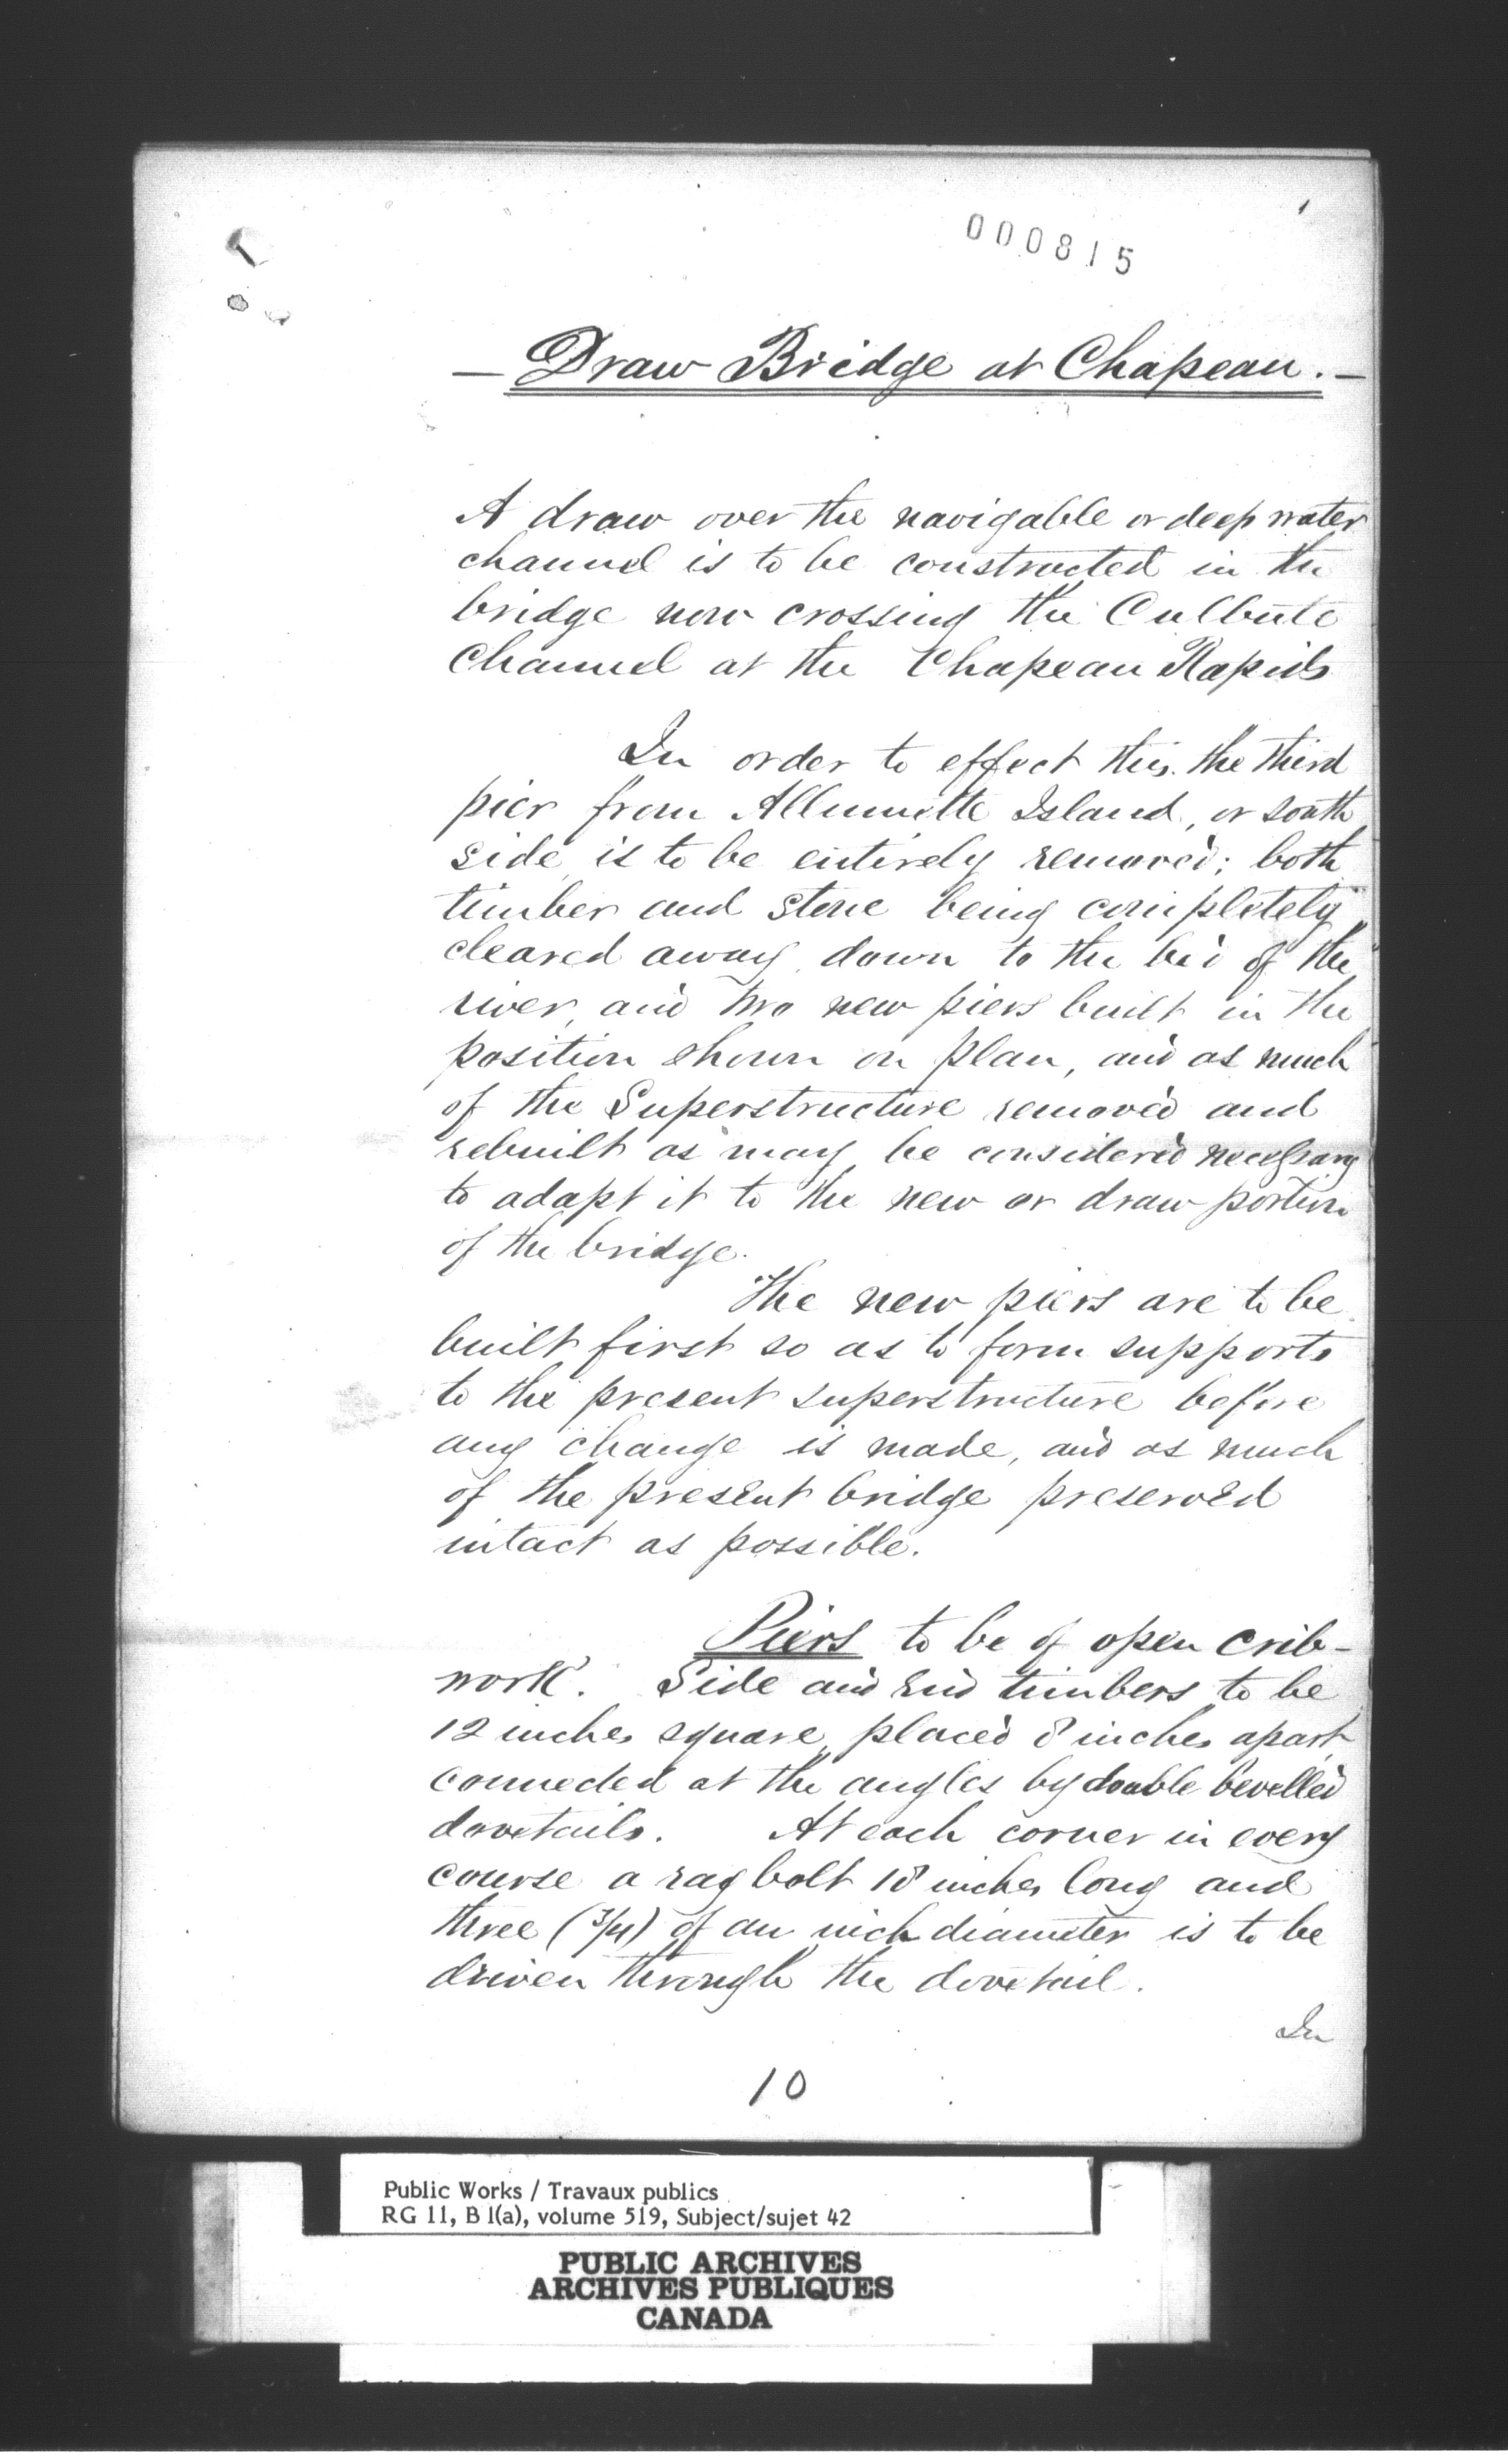 000815
— Draw Bridge at Chapeau. —
A draw over the navigable or deep water
channel is to be constructed in the
bridge now crossing the Culbute
Channel at the Chapeau Rapids
In order to effect this. the third
pier from Allumette Island, or south
side, is to be entirely removed; both
timber and stone being completely
cleared away down to the bed of the
river, and two new piers built in the
position shown on plan, and as much
of the Superstructure removed and
rebuilt as may be considered necessary
to adapt it to the new or draw portion
of the bridge.
The new piers are to be
built first so as to form supports
to the present superstructure before
any change is made, and as much
of the present bridge preserved
intact as possible.
Piers to be of open crib-
work. Side and end timbers to be
12 inches square, placed 8 inches apart
connected at the angles by double bevelled
dovetails. At each corner in every
course a rag bolt 18 inches long and
three (3/4) of an inch diameter is to be
driven through the dovetail.
In
10
Public Works / Travaux publics
RG 11, B 1(a), volume 519, Subject/sujet 42
PUBLIC ARCHIVES
ARCHIVES PUBLIQUES
CANADA